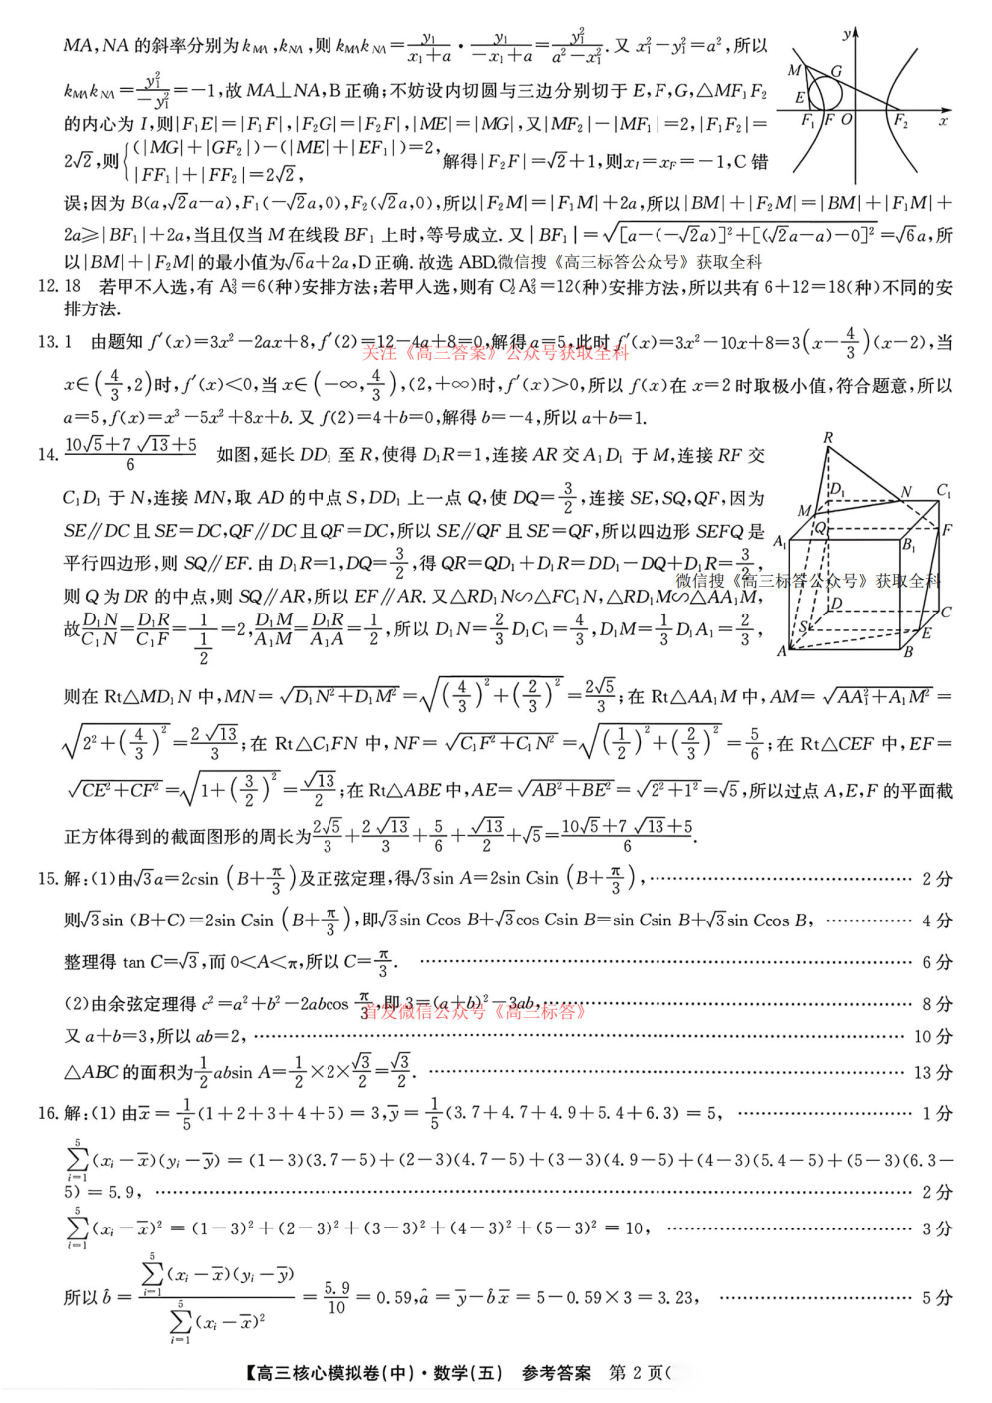 MA,NA 的斜率分别为 k_{MA},k_{NA},则 k_{MA}k_{NA}=\frac{y_1}{x_1+a}·\frac{y_1}{-x_1+a}=\frac{y_1^2}{a^2-x_1^2}.又 x_1^2-y_1^2=a^2,所以
k_{MA}k_{NA}=\frac{y_1^2}{-y_1^2}=-1,故 MA⊥NA,B 正确;不妨设内切圆与三边分别切于 E,F,G,△MF_1F_2
的内心为 I,则|F_1E|=|F_1F|,|F_2G|=|F_2F|,|ME|=|MG|,又|MF_2|-|MF_1|=2,|F_1F_2|=
2√2,则{(|MG|+|GF_2|)-(|ME|+|EF_1|)=2, |FF_1|+|FF_2|=2√2, 解得|F_2F|=√2+1,则x_I=x_F=-1,C 错
误;因为 B(a,√2a-a),F_1(-√2a,0),F_2(√2a,0),所以|F_2M|=|F_1M|+2a,所以|BM|+|F_2M|=|BM|+|F_1M|+
2a≥|BF_1|+2a,当且仅当 M 在线段 BF_1 上时,等号成立.又|BF_1|=√{[a-(-√2a)]^2+[(√2a-a)-0]^2}=√6a,所
以|BM|+|F_2M|的最小值为√6a+2a,D 正确.故选 ABD.微信搜《高三标答公众号》获取全科
12. 18 若甲不入选,有 A_3^3=6(种)安排方法;若甲入选,则有 C_2^1A_3^3=12(种)安排方法,所以共有 6+12=18(种)不同的安
排方法.
13. 1 由题知 f′(x)=3x^2-2ax+8,f′(2)=12-4a+8=0,解得 a=5,此时 f′(x)=3x^2-10x+8=3(x-\frac{4}{3})(x-2),当
关注《高三答案》公众号获取全科
x∈(\frac{4}{3},2)时,f′(x)<0,当 x∈(-∞,\frac{4}{3}),(2,+∞)时,f′(x)>0,所以 f(x)在 x=2 时取极小值,符合题意,所以
a=5,f(x)=x^3-5x^2+8x+b.又 f(2)=4+b=0,解得 b=-4,所以 a+b=1.
14. \frac{10√5+7√13+5}{6} 如图,延长 DD_1 至 R,使得 D_1R=1,连接 AR 交 A_1D_1 于 M,连接 RF 交
C_1D_1 于 N,连接 MN,取 AD 的中点 S,DD_1 上一点 Q,使 DQ=\frac{3}{2},连接 SE,SQ,QF,因为
SE∥DC 且 SE=DC,QF∥DC 且 QF=DC,所以 SE∥QF 且 SE=QF,所以四边形 SEFQ 是
平行四边形,则 SQ∥EF.由 D_1R=1,DQ=\frac{3}{2},得 QR=QD_1+D_1R=DD_1-DQ+D_1R=\frac{3}{2},
微信搜《高三标答公众号》获取全科
则 Q 为 DR 的中点,则 SQ∥AR,所以 EF∥AR.又△RD_1N∽△FC_1N,△RD_1M∽△AA_1M,
故\frac{D_1N}{C_1N}=\frac{D_1R}{C_1F}=\frac{1}{\frac{1}{2}}=2,\frac{D_1M}{A_1M}=\frac{D_1R}{A_1A}=\frac{1}{2},所以 D_1N=\frac{2}{3}D_1C_1=\frac{4}{3},D_1M=\frac{1}{3}D_1A_1=\frac{2}{3},
则在 Rt△MD_1N 中,MN=√{D_1N^2+D_1M^2}=√{(\frac{4}{3})^2+(\frac{2}{3})^2}=\frac{2√5}{3};在 Rt△AA_1M 中,AM=√{AA_1^2+A_1M^2}=
√{2^2+(\frac{4}{3})^2}=\frac{2√13}{3};在 Rt△C_1FN 中,NF=√{C_1F^2+C_1N^2}=√{(\frac{1}{2})^2+(\frac{2}{3})^2}=\frac{5}{6};在 Rt△CEF 中,EF=
√{CE^2+CF^2}=√{1+(\frac{3}{2})^2}=\frac{√13}{2};在 Rt△ABE 中,AE=√{AB^2+BE^2}=√{2^2+1^2}=√5,所以过点 A,E,F 的平面截
正方体得到的截面图形的周长为\frac{2√5}{3}+\frac{2√13}{3}+\frac{5}{6}+\frac{√13}{2}+√5=\frac{10√5+7√13+5}{6}.
15. 解:(1)由√3a=2csin(B+\frac{π}{3})及正弦定理,得√3sin A=2sin Csin(B+\frac{π}{3}),…… 2 分
则√3sin (B+C)=2sin Csin(B+\frac{π}{3}),即√3sin Ccos B+√3cos Csin B=sin Csin B+√3sin Ccos B,…… 4 分
整理得 tan C=√3,而 0<A<π,所以 C=\frac{π}{3}.…… 6 分
(2)由余弦定理得 c^2=a^2+b^2-2abcos \frac{π}{3},即 3=(a+b)^2-3ab,…… 8 分
首发微信公众号《高三标答》
又 a+b=3,所以 ab=2,…… 10 分
△ABC 的面积为\frac{1}{2}absin A=\frac{1}{2}×2×\frac{√3}{2}=\frac{√3}{2}.…… 13 分
16. 解:(1) 由 x̄=\frac{1}{5}(1+2+3+4+5)=3,ȳ=\frac{1}{5}(3.7+4.7+4.9+5.4+6.3)=5,…… 1 分
\sum_{i=1}^{5}(x_i-x̄)(y_i-ȳ)=(1-3)(3.7-5)+(2-3)(4.7-5)+(3-3)(4.9-5)+(4-3)(5.4-5)+(5-3)(6.3-
5)=5.9,…… 2 分
\sum_{i=1}^{5}(x_i-x̄)^2=(1-3)^2+(2-3)^2+(3-3)^2+(4-3)^2+(5-3)^2=10,…… 3 分
所以 b̂=\frac{\sum_{i=1}^{5}(x_i-x̄)(y_i-ȳ)}{\sum_{i=1}^{5}(x_i-x̄)^2}=\frac{5.9}{10}=0.59,â=ȳ-b̂x̄=5-0.59×3=3.23,…… 5 分
【高三核心模拟卷(中)·数学(五) 参考答案 第 2 页(
y
M
G
E
F_1
F
O
F_2
x
R
D_1
N
C_1
M
Q
F
A_1
B_1
D
C
S
E
A
B